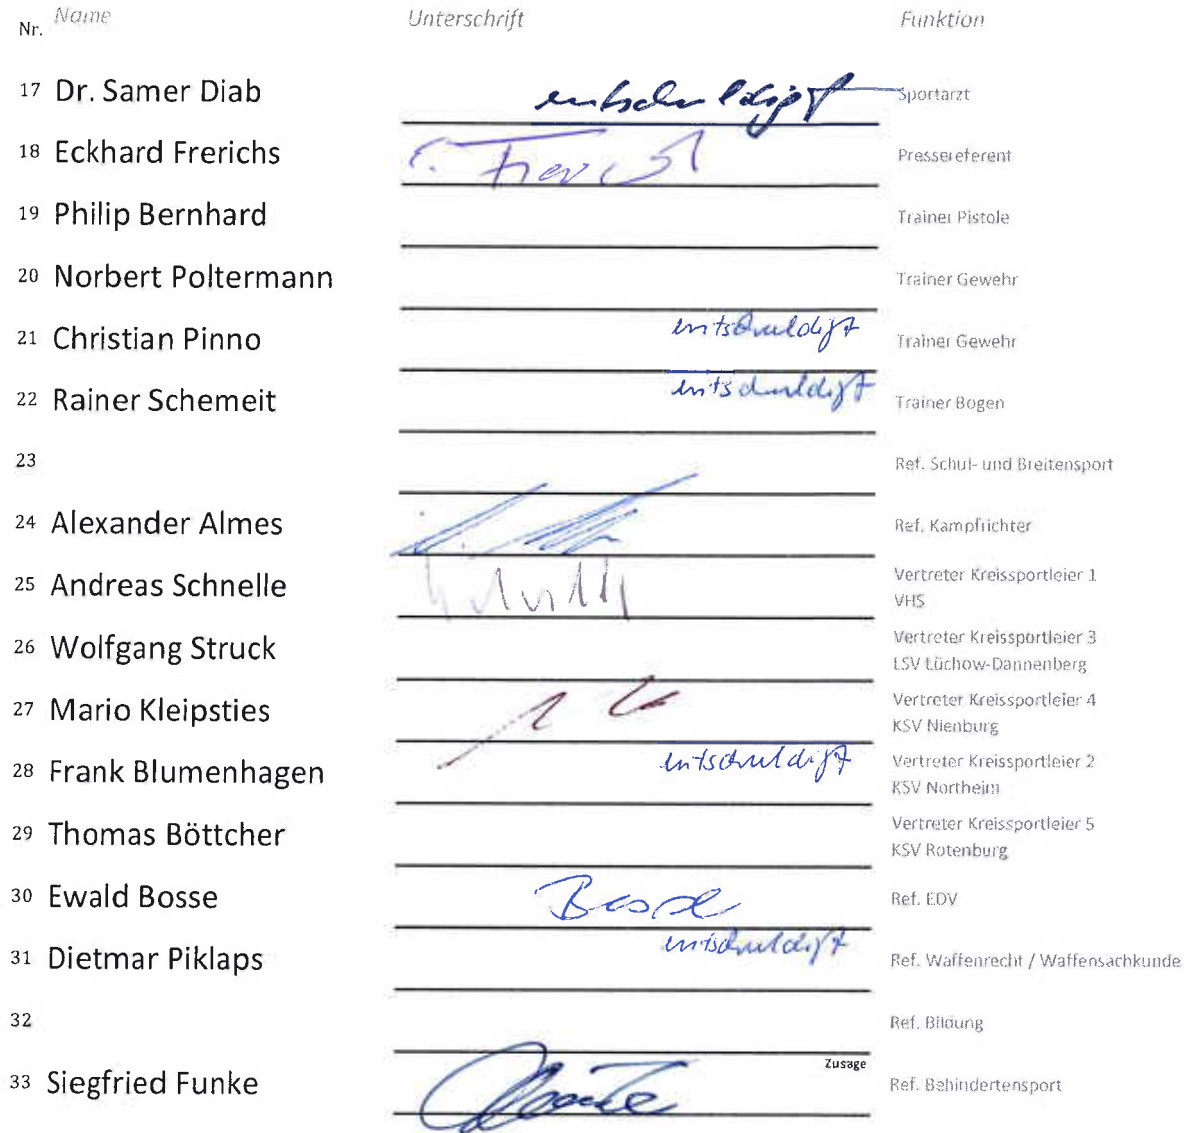 Nr. Name Unterschrift Funktion
17 Dr. Samer Diab entschuldigt Sportarzt
18 Eckhard Frerichs E. Frerichs Pressereferent
19 Philip Bernhard Trainer Pistole
20 Norbert Poltermann Trainer Gewehr
21 Christian Pinno entschuldigt Trainer Gewehr
22 Rainer Schemeit entschuldigt Trainer Bogen
23 Ref. Schul- und Breitensport
24 Alexander Almes Ref. Kampfrichter
25 Andreas Schnelle Vertreter Kreissportleier 1
VHS
26 Wolfgang Struck Vertreter Kreissportleier 3
LSV Lüchow-Dannenberg
27 Mario Kleipsties Vertreter Kreissportleier 4
KSV Nienburg
28 Frank Blumenhagen entschuldigt Vertreter Kreissportleier 2
KSV Northeim
29 Thomas Böttcher Vertreter Kreissportleier 5
KSV Rotenburg
30 Ewald Bosse Bosse Ref. EDV
31 Dietmar Piklaps entschuldigt Ref. Waffenrecht / Waffensachkunde
32 Ref. Bildung
Zusage
33 Siegfried Funke Ref. Behindertensport